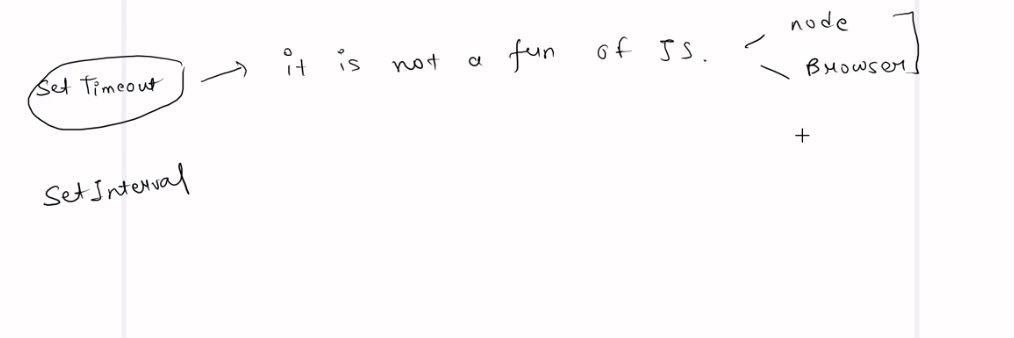 node
Set Timeout → it is not a fun of JS.
Browser
+
SetInterval